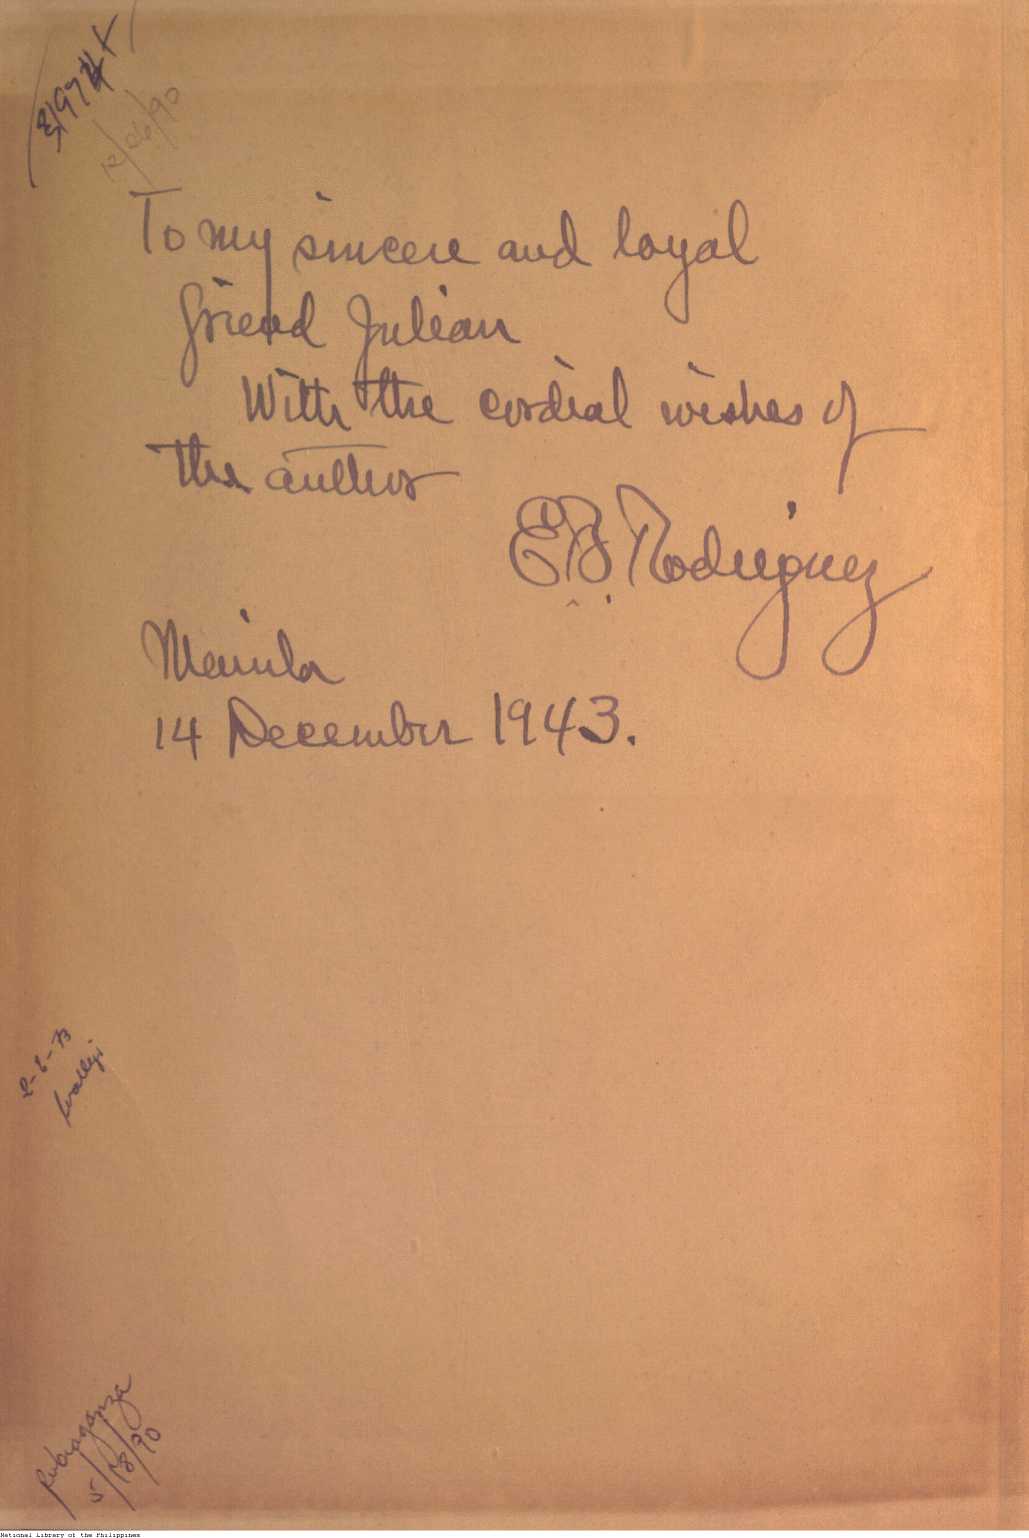 12/06/90
To my sincere and loyal
friend Julian
With the cordial wishes of
the author
EB Rodriguez
Manila
14 December 1943.
5/18/90
National Library of the Philippines